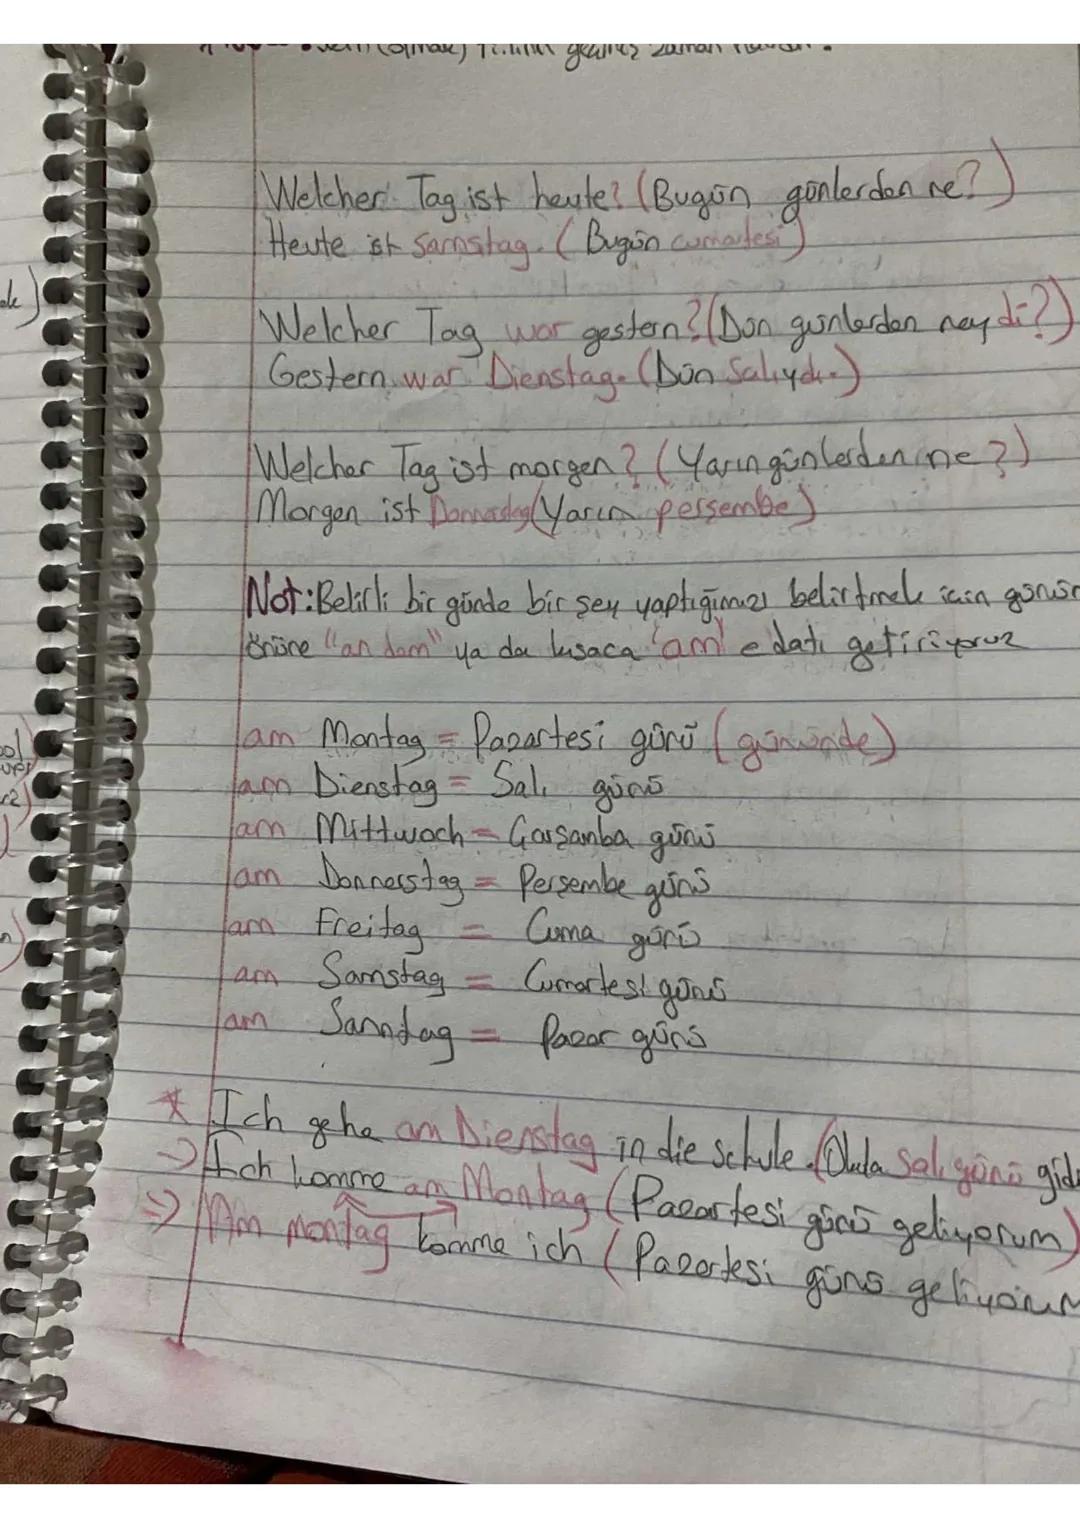 geçmiş zaman
Welcher Tag ist heute? (Bugün günlerden ne?)
Heute ist Samstag. (Bugün cumartesi)
Welcher Tag war gestern? (Dün günlerden neydi?)
Gestern war Dienstag. (Dün Salıydı.)
Welcher Tag ist morgen? (Yarın günlerden ne?)
Morgen ist Donnerstag (Yarın perşembe)
Not: Belirli bir günde bir şey yaptığımızı belirtmek için günün
önüne "an dem" ya da kısaca "am" edatı getiriyoruz
am Montag = Pazartesi günü (gününde)
am Dienstag = Salı günü
am Mittwoch = Çarşamba günü
am Donnerstag = Perşembe günü
am Freitag = Cuma günü
am Samstag = Cumartesi günü
am Sanntag = Pazar günü
* Ich gehe am Dienstag in die schule. (Okula Salı günü gid
→ Ich komme am Montag (Pazartesi günü geliyorum)
⇒ Am montag komme ich (Pazartesi günü geliyorum